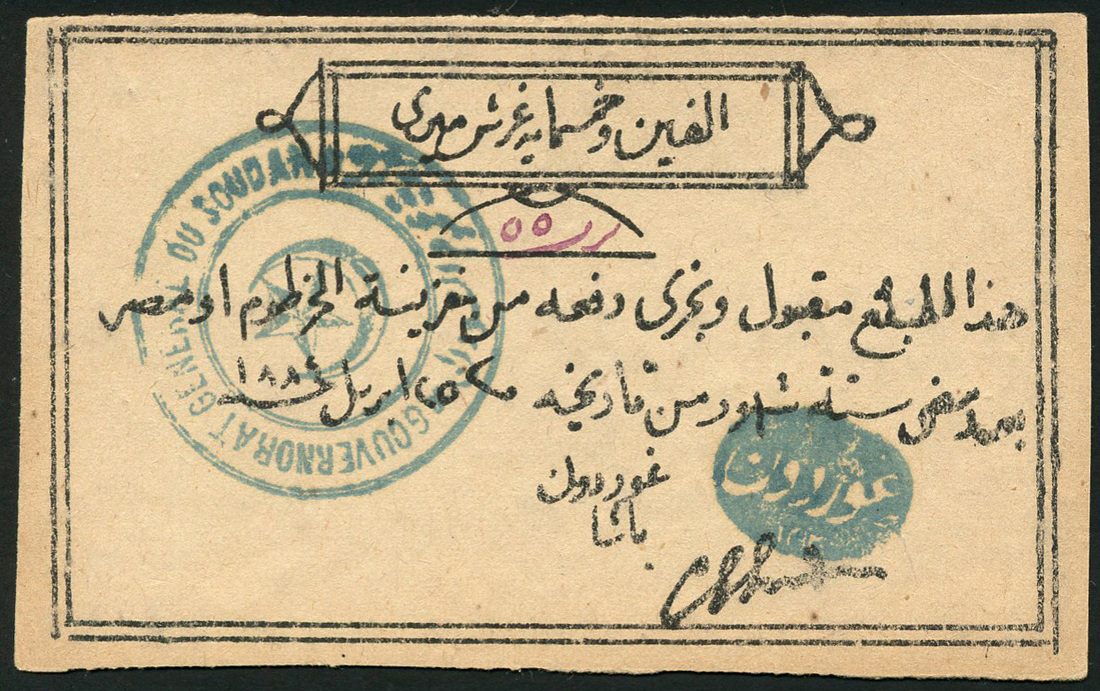 الفين وخمسمايه غرش ميرى
هذا المبلغ مقبول وتجرى دفعه من خزينة الخرطوم او مصر
بعد مضى ستة شهور من تاريخه ٢٥ ابريل سنة ١٨٨٤
غوردون
باشا
GOUVERNORAT DU SOUDAN
غوردون